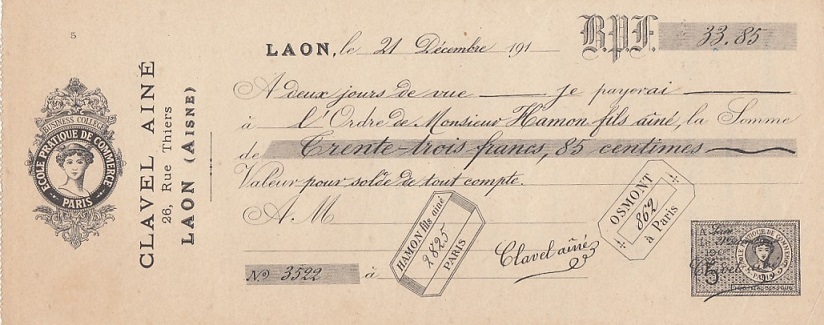 5
BUSINESS COLLEGE
ECOLE PRATIQUE DE COMMERCE
PARIS
CLAVEL AINÉ
26, Rue Thiers
LAON (AISNE)
LAON, le 21 Décembre 191
B.P.F. 33.85
A deux jours de vue je payerai
à l'Ordre de Monsieur Hamon fils aîné, la Somme
de Trente-trois francs, 85 centimes
Valeur pour solde de tout compte.
A M
HAMON fils ainé
2825
PARIS
OSMONT
862
à Paris
Clavel aîné
No 3522 à
ECOLE PRATIQUE DE COMMERCE
PARIS
5
Clavel